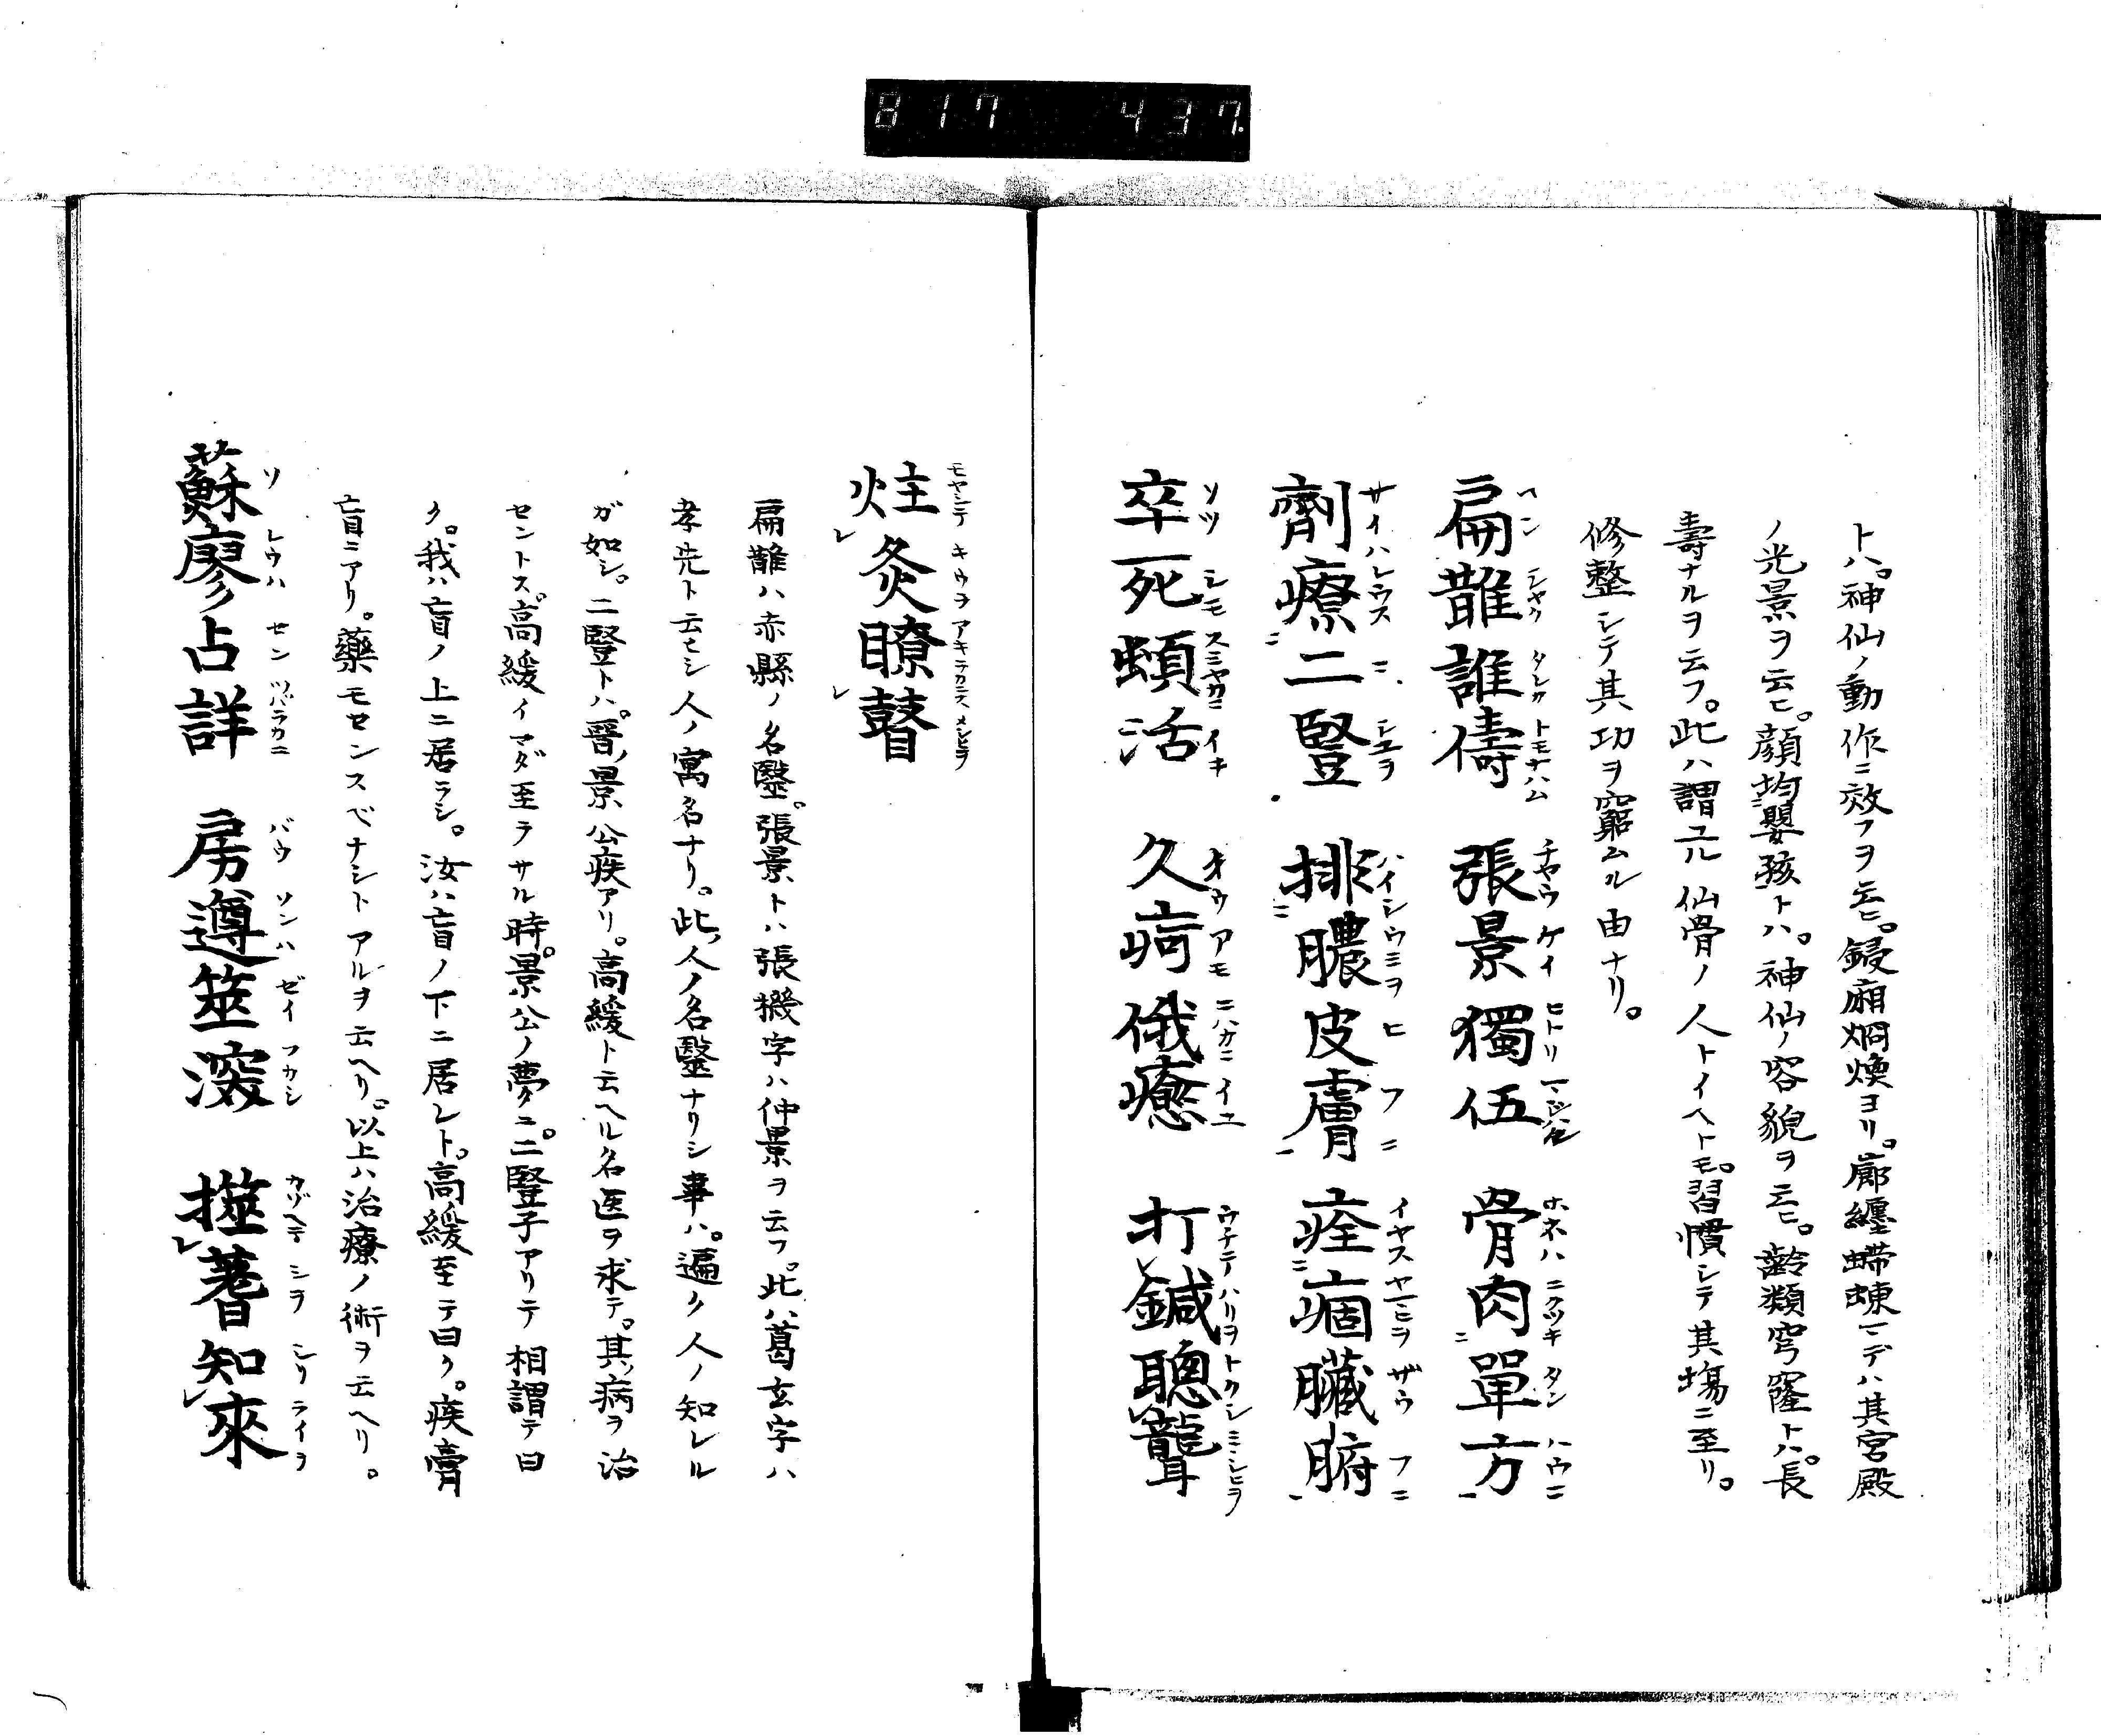 817 437.
トハ。神仙ノ動作ニ效フヲ云ヒ。錽廂烱煥ヨリ。廊纏螮蝀マデハ其宮殿
ノ光景ヲ云ヒ。顔均嬰孩トハ。神仙ノ容貌ヲ云ヒ。齡類穹窿トハ。長
壽ナルヲ云フ。此ハ謂ユル仙骨ノ人トイヘトモ。習慣シテ其塲ニ至リ。
修整シテ其功ヲ窮ムル由ナリ。
扁鵲誰儔 張景獨伍 骨肉單方
劑療二豎 排膿皮膚 痊痼臟腑
卒死頓活 久痾俄癒 打鍼聰聾
炷灸瞭瞽
扁鵲ハ赤縣ノ名醫。張景トハ張機字ハ仲景ヲ云フ。此ハ葛玄字ハ
孝先ト云ヒシ人ノ寓名ナリ。此人ノ名醫ナリシ事ハ。遍ク人ノ知レル
ガ如シ。二豎トハ。晉ノ景公疾アリ。高緩ト云ヘル名医ヲ求テ。其病ヲ治
セントス。高緩イマダ至ラサル時。景公ノ夢ニ。二豎子アリテ相謂テ曰
ク。我ハ盲ノ上ニ居ラシ。汝ハ盲ノ下ニ居レト。高緩至テ曰ク。疾膏
盲ニアリ。藥モセンスベナシトアルヲ云ヘリ。以上ハ治療ノ術ヲ云ヘリ。
蘇廖占詳 房遵筮深 揲蓍知來